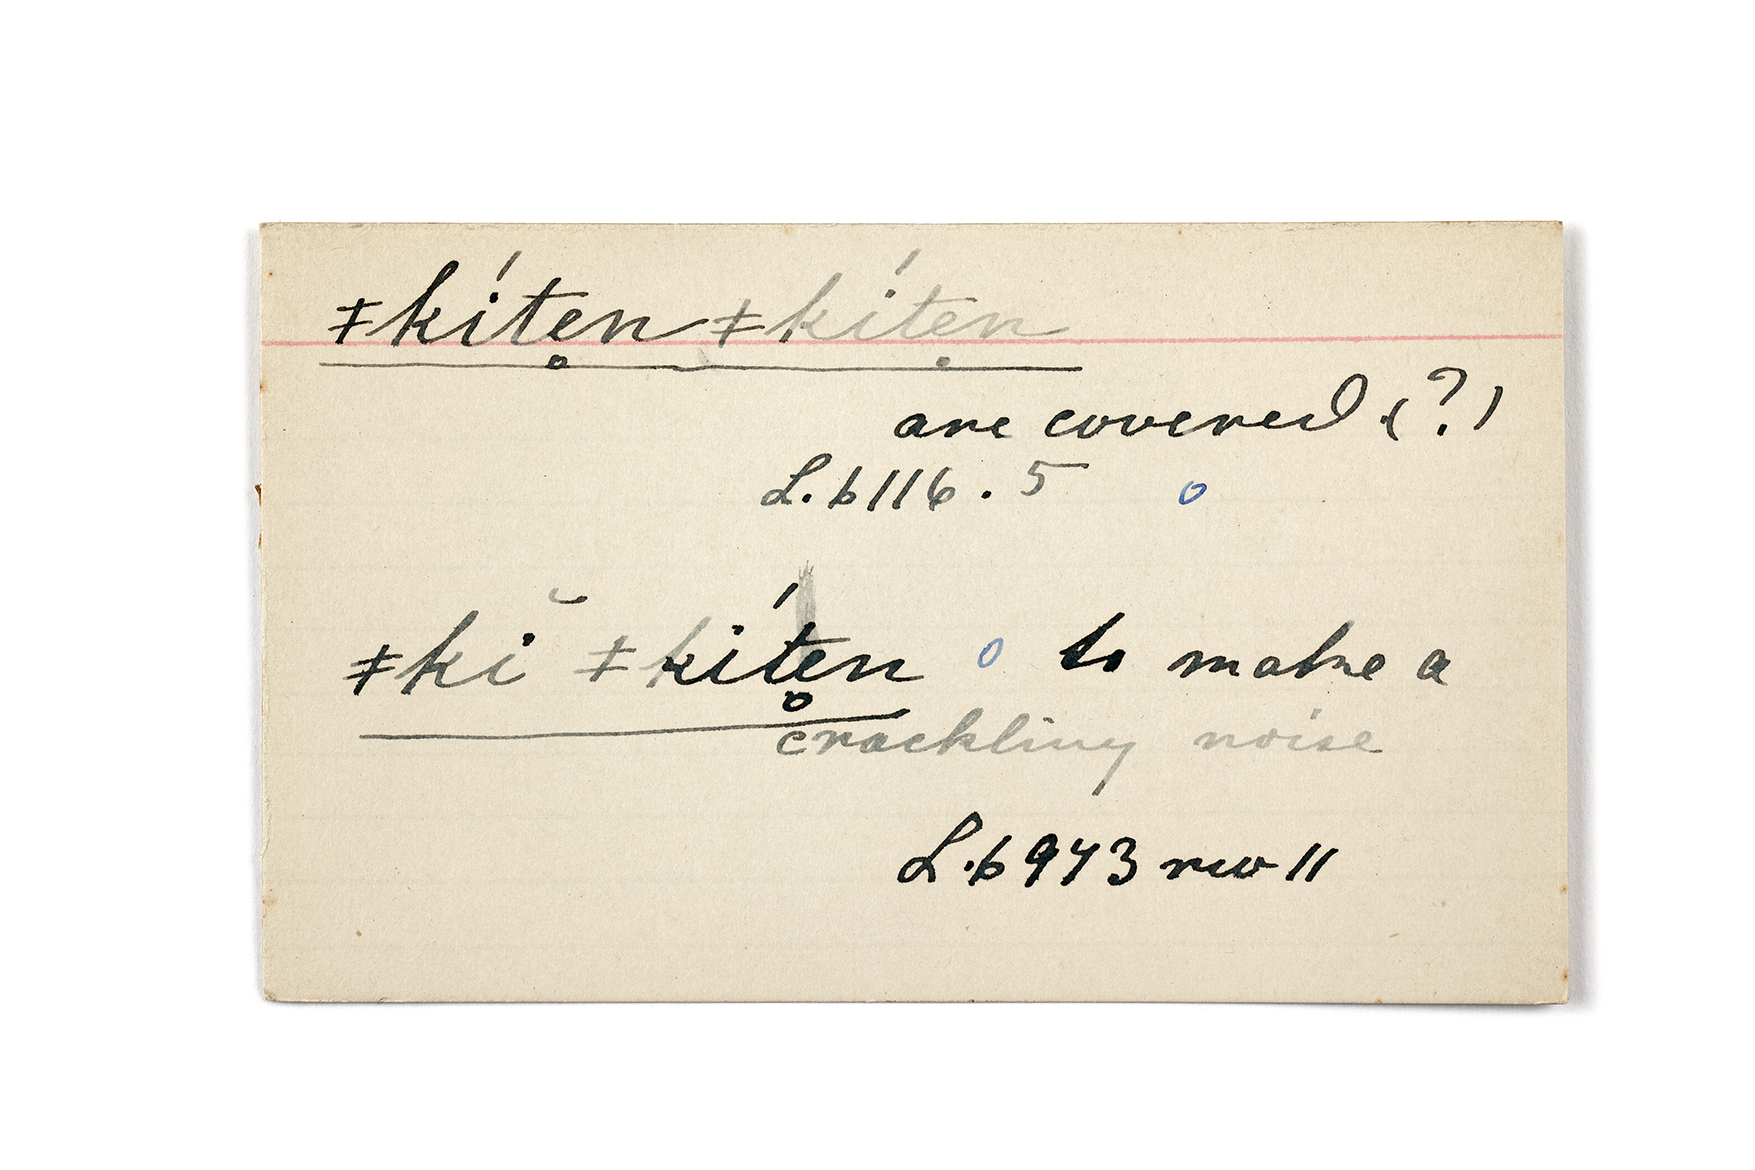 ǂkíte̥n ǂkíte̥n
are covered (?)
L.b116.5 o
ǂkĭ ǂkíte̥n o to make a
crackling noise
L.b943 rev 11